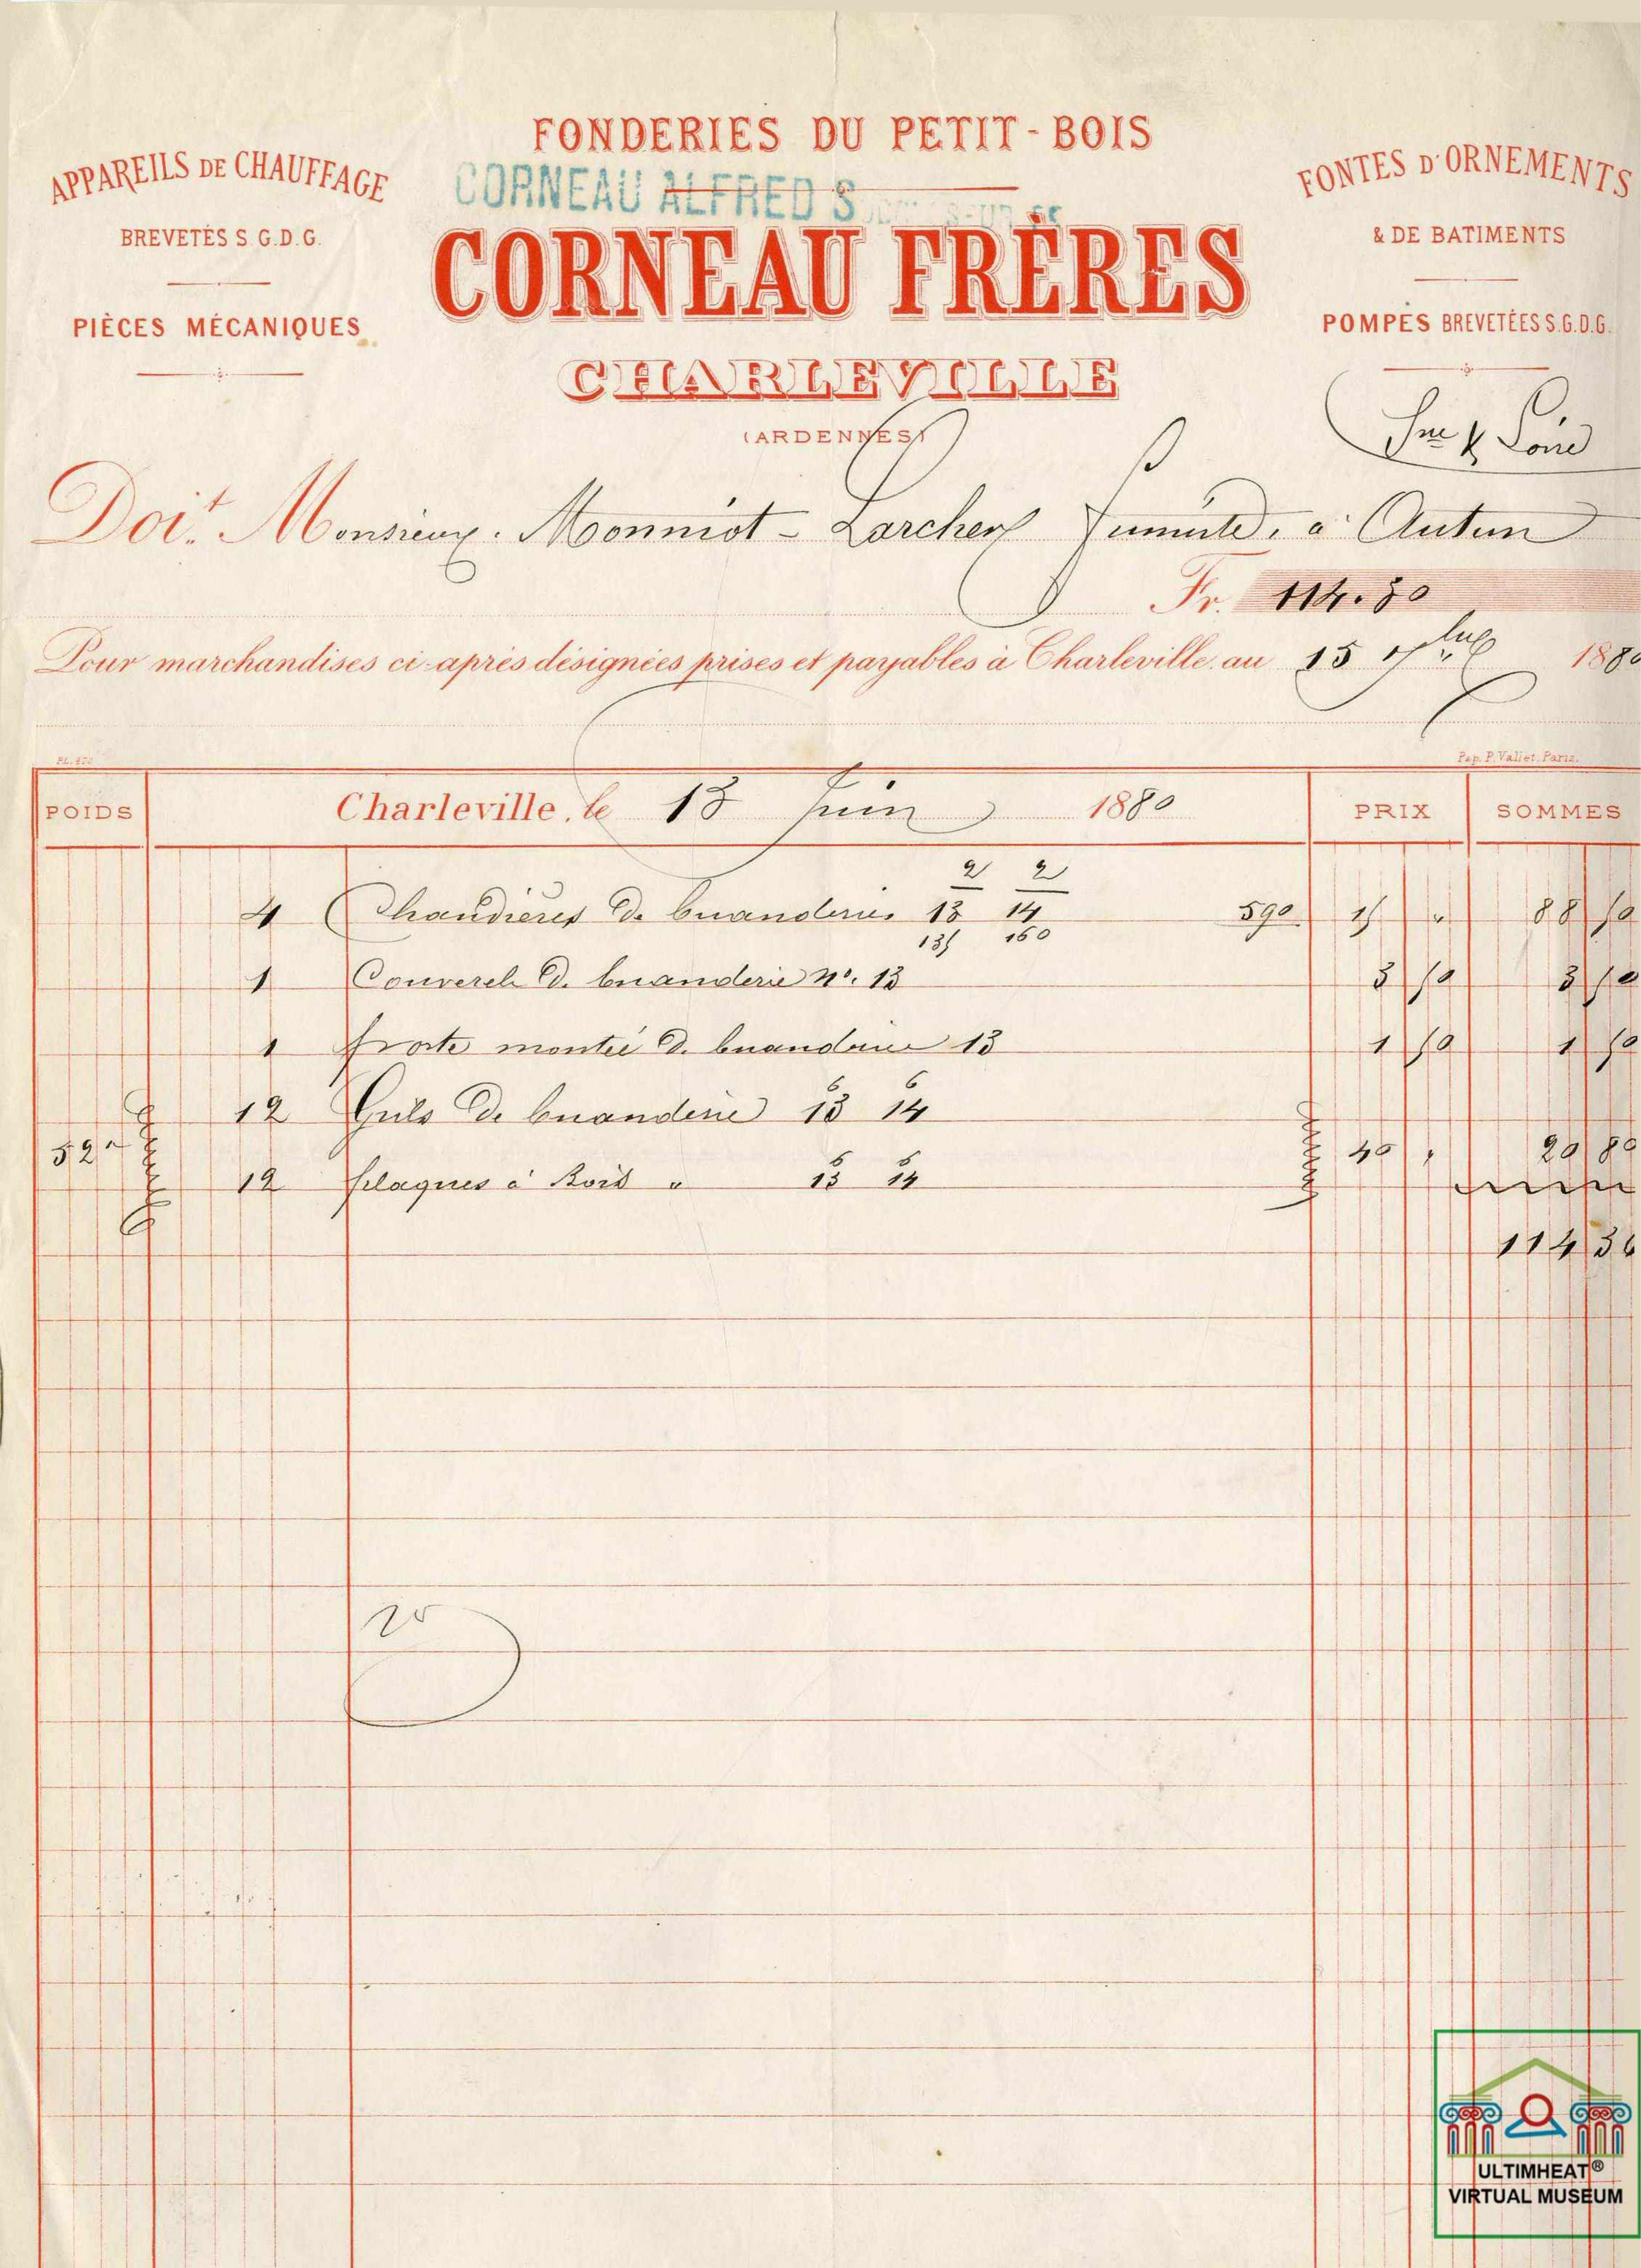 FONDERIES DU PETIT-BOIS
APPAREILS DE CHAUFFAGE
BREVETÉS S.G.D.G.
PIÈCES MÉCANIQUES
CORNEAU ALFRED S
CORNEAU FRÈRES
CHARLEVILLE
(ARDENNES)
FONTES D'ORNEMENTS
& DE BATIMENTS
POMPES BREVETÉES S.G.D.G.
Sne & Loire
Doit Monsieur Monniot-Larcher fumiste, à Autun
Fr. 114.30
Pour marchandises ci-après désignées prises et payables à Charleville au 15 7bre 1880
Pap. P. Vallet. Paris.
POIDS Charleville, le 13 Juin 1880 PRIX SOMMES
2 2
4 Chaudières de buanderies 13 14 590 15 " 88 50
135 160
1 Couvercle de buanderie n° 13 3 50 3 50
1 porte montée de buanderie 13 1 50 1 50
6 6
12 Grils de buanderie 13 14
52 40 " 20 80
6 6
12 plaques à Bois " 13 14
114 30
ULTIMHEAT®
VIRTUAL MUSEUM